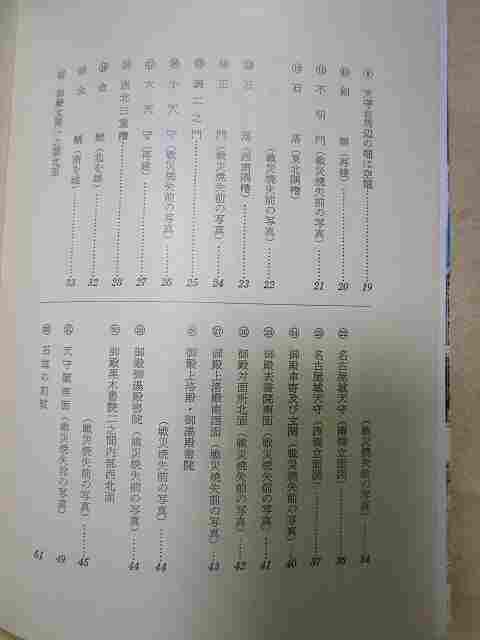 ⑨ 天守台周辺の堀は空堀……19
⑩ 剣塀(再建)……20
⑪ 不明門(戦災焼失前の写真)……21
⑫ 石落(東北隅櫓)
(戦災焼失前の写真)……22
石落(西南隅櫓)……23
正門(戦災焼失前の写真)……24
表二之門……25
小天守(戦災焼失前の写真)……26
大天守(再建)……27
西北三重櫓……28
金鯱(北を雄)……32
金鯱(南を雌)……33
(戦災焼失前の写真)……34
名古屋城天守(南側立面図)……36
名古屋城天守(西側立面図)……37
御殿車寄及び玄関(戦災焼失前の写真)……40
御殿表書院南面(戦災焼失前の写真)……41
御殿対面所北面(戦災焼失前の写真)……42
御殿上洛殿南西面(戦災焼失前の写真)……43
御殿上洛殿・御湯殿書院
(戦災焼失前の写真)……44
御殿御湯殿書院(戦災焼失前の写真)……44
御殿黒木書院二之間内部西北面
(戦災焼失前の写真)……45
天守閣南面(戦災焼失前の写真)……49
石垣の刻紋……61